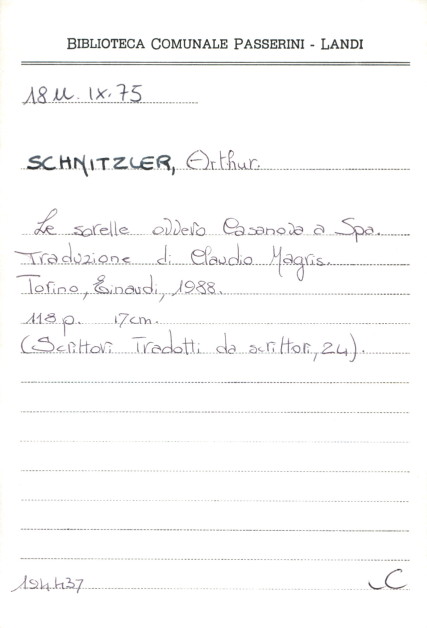 BIBLIOTECA COMUNALE PASSERINI - LANDI
18 U. IX. 75
SCHNITZLER, Arthur.
Le sorelle ovvero Casanova a Spa.
Traduzione di Claudio Magris.
Torino, Einaudi, 1988.
118 p. 17 cm.
(Scrittori Tradotti da scrittori, 24).
194437
C